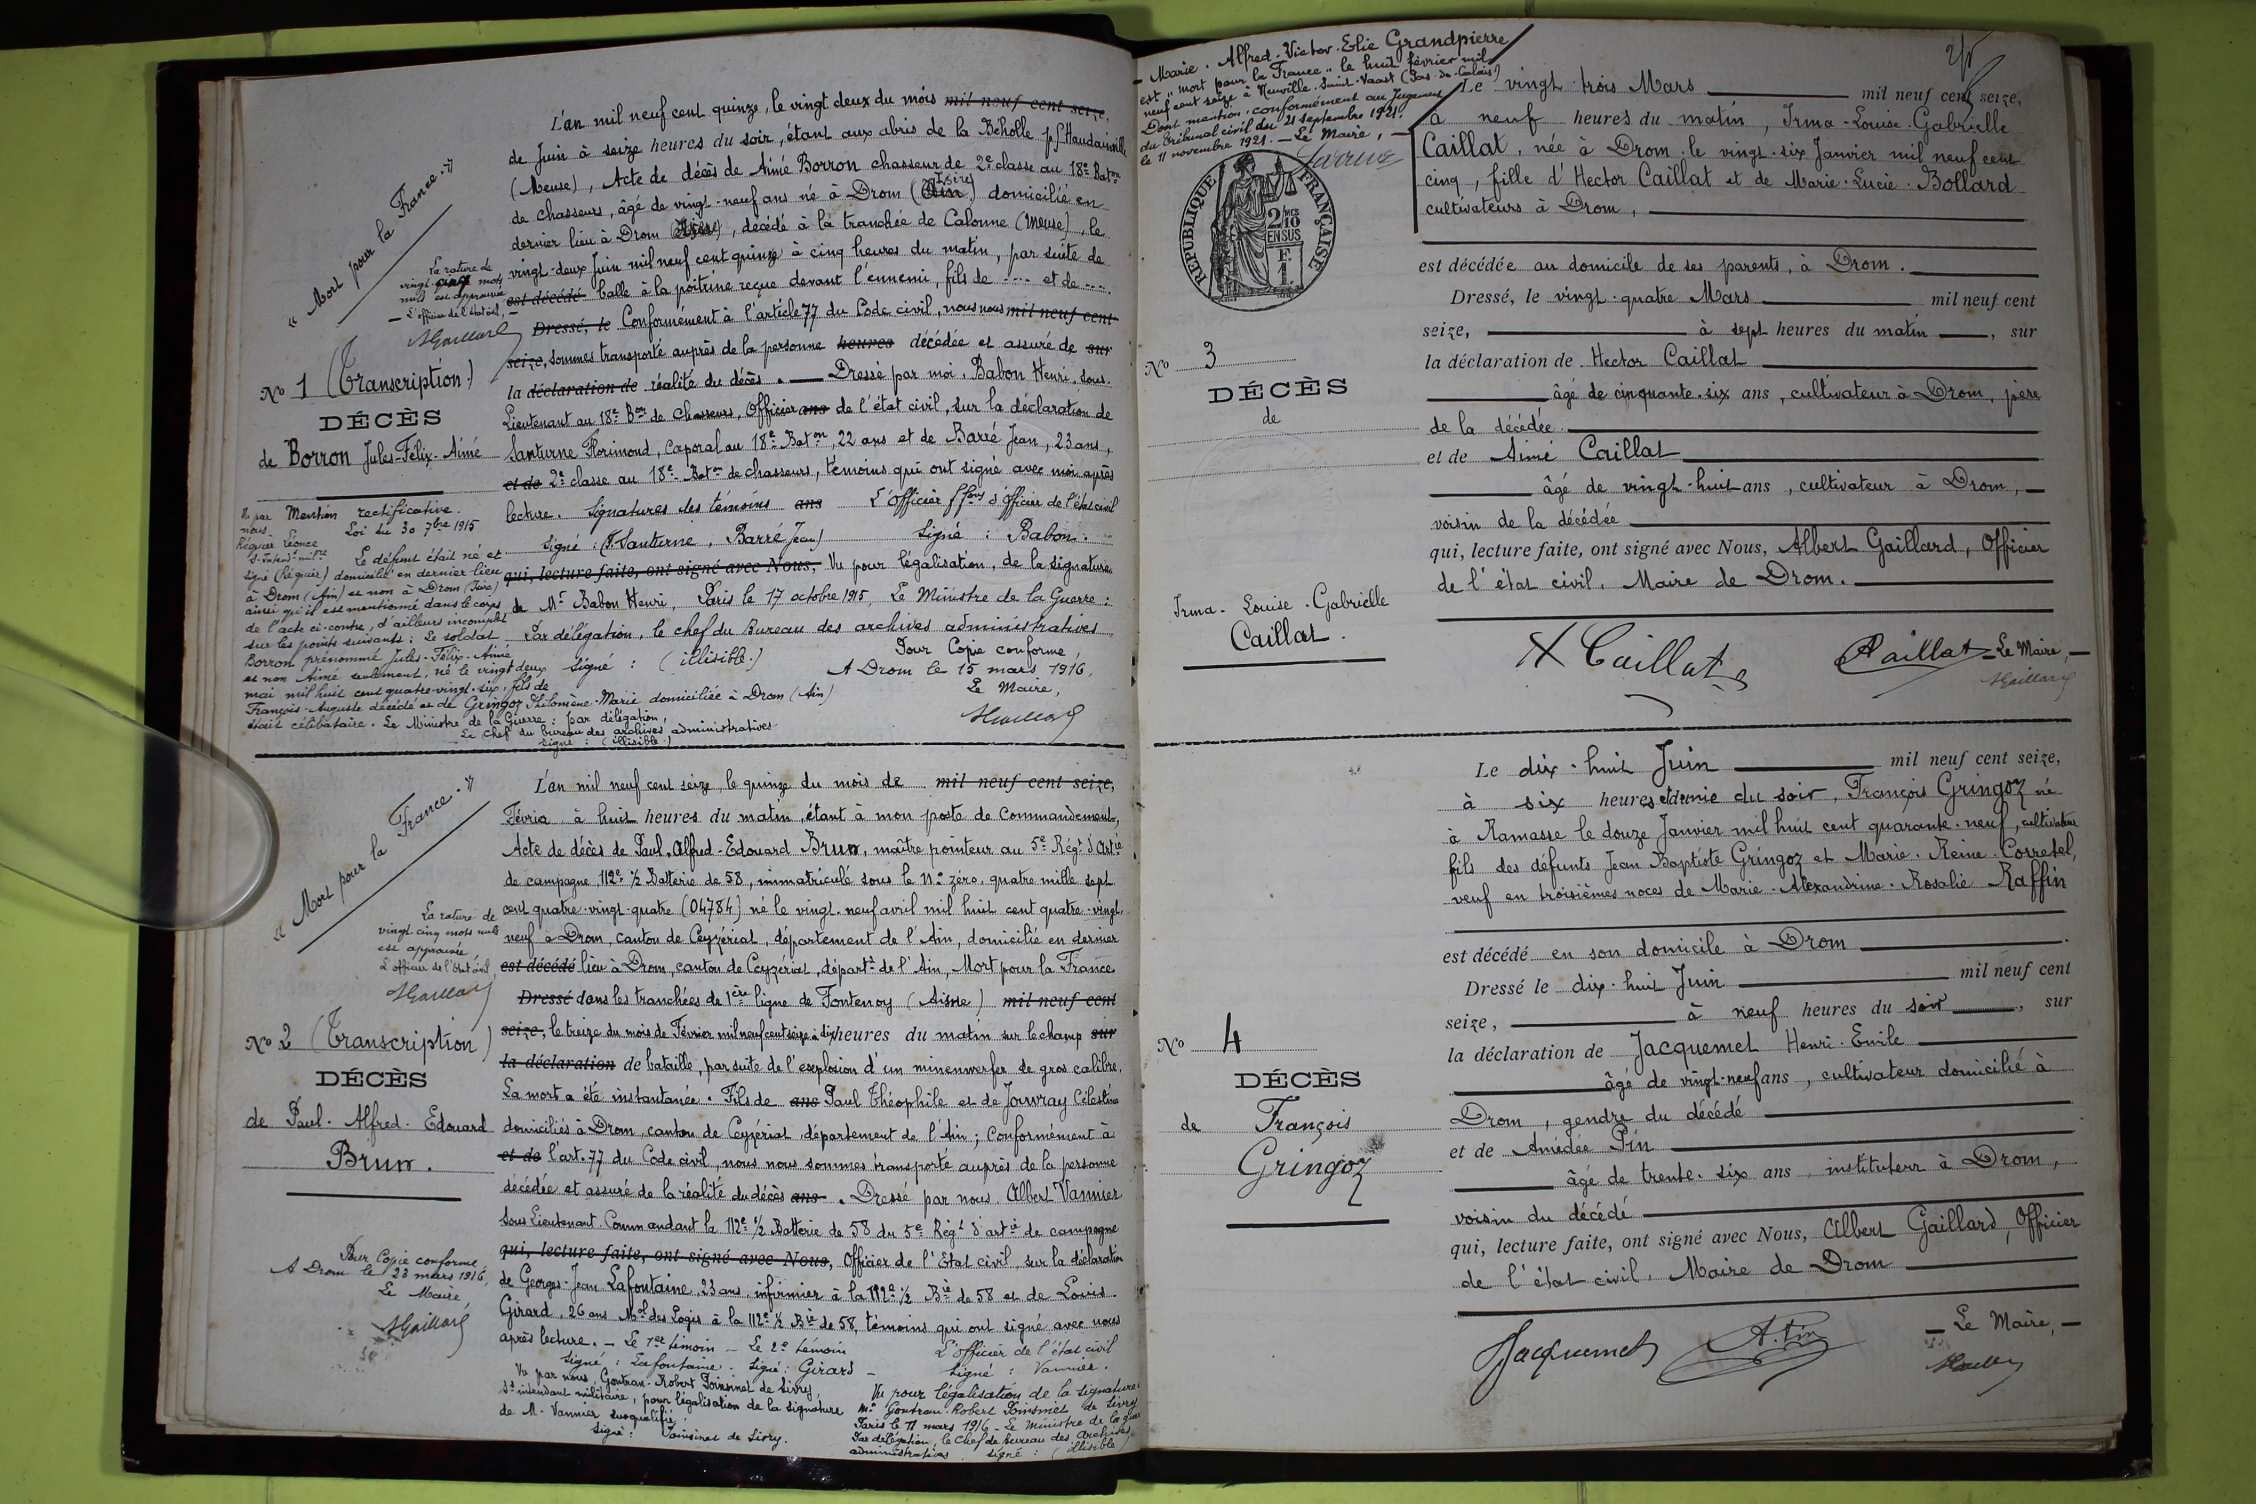 L'an mil neuf cent quinze, le vingt deux du mois mil neuf cent seize,
de Juin à seize heures du soir, étant aux abris de la Beholle
(Meuse), Acte de décès de Aimé Borron chasseur de 2e classe au 18e Baton
de chasseurs, âgé de vingt-neuf ans né à Drom (Isère) domicilié en
dernier lieu à Drom (Isère), décédé à la tranchée de Calonne (Meuse), le
vingt-deux Juin mil neuf cent quinze à cinq heures du matin, par suite de
est décédé balle à la poitrine reçue devant l'ennemi, fils de .... et de ....
Dressé, le Conformément à l'article 77 du Code civil, nous nous mil neuf cent
seize, sommes transporté auprès de la personne heures décédée et assuré de sur
la déclaration de réalité du décès. — Dressé par moi, Babon Henri, sous-
Lieutenant au 18e Bon de Chasseurs, Officier ans de l'état civil, sur la déclaration de
Santurne Florimond, Caporal au 18e Baton, 22 ans et de Barré Jean, 23 ans,
et de 2e classe au 18e Baton de chasseurs, témoins qui ont signé avec moi après
lecture. Signatures des témoins ans L'Officier ffons d'officier de l'état civil
Signé (F. Santurne, Barré Jean) Signé : Babon.
qui, lecture faite, ont signé avec Nous, Vu pour légalisation, de la signature
de Mr Babon Henri, Paris le 17 octobre 1915, Le Ministre de la Guerre :
Par délégation, le chef du Bureau des archives administratives
Signé : (illisible.)
Pour Copie conforme,
A Drom le 15 mars 1916,
Le Maire,
AGaillard
« Mort pour la France. »
La rature de
vingt cinq mots
nuls est approuvée
— L'officier de l'état civil, —
AGaillard
No 1 (Transcription)
DÉCÈS
de Borron Jules-Félix-Aimé
Mention rectificative.
Loi du 30 7bre 1915
Vu par
nous
Réquier Léonce
signé (Réquier)
Le défunt était né et
domicilié en dernier lieu
à Drom (Ain) et non à Drom (Isère)
ainsi qu'il est mentionné dans le corps
de l'acte ci-contre, d'ailleurs incomplet
sur les points suivants : Le soldat
Borron prénommé Jules-Félix-Aimé
et non Aimé seulement, né le vingt deux
mai mil huit cent quatre-vingt-six, fils de
François-Auguste décédé et de Gringoz Philomène-Marie domiciliée à Drom (Ain)
était célibataire. Le Ministre de la Guerre : par délégation,
Le chef du bureau des archives administratives
Signé : (illisible.)
L'an mil neuf cent seize, le quinze du mois de mil neuf cent seize,
Février à huit heures du matin, étant à mon poste de Commandement,
Acte de décès de Paul-Alfred-Edouard Brun, maître pointeur au 5e Régt d'Artie
de campagne, 112e ½ Batterie de 58, immatriculé sous le No zéro, quatre mille sept
cent quatre-vingt-quatre (04784) né le vingt-neuf avril mil huit cent quatre-vingt-
neuf à Drom, canton de Ceyzériat, département de l'Ain, domicilié en dernier
est décédé lieu à Drom, canton de Ceyzériat, départt de l'Ain, Mort pour la France
Dressé dans les tranchées de 1ère ligne de Fontenoy (Aisne) mil neuf cent
seize, le treize du mois de Février mil neuf cent seize à dix heures du matin sur le champ sur
la déclaration de bataille, par suite de l'explosion d'un minenwerfer de gros calibre.
La mort a été instantanée. Fils de ans Paul Théophile et de Jouvray Célestine
domiciliés à Drom, canton de Ceyzériat, département de l'Ain ; Conformément à
et de l'art. 77 du Code civil, nous nous sommes transporté auprès de la personne
décédée et assuré de la réalité du décès ans. Dressé par nous Albert Vannier
Sous Lieutenant Commandant la 112e ½ Batterie de 58 du 5e Régt d'artie de campagne
qui, lecture faite, ont signé avec Nous, Officier de l'Etat civil, sur la déclaration
de Georges-Jean Lafontaine, 23 ans, infirmier à la 112e ½ Bie de 58 et de Louis
Girard, 26 ans Mal des Logis à la 112e ½ Bie de 58, témoins qui ont signé avec nous
après lecture. — Le 1er témoin — Le 2e témoin L'officier de l'état civil
Signé : Lafontaine. Signé : Girard — Signé : Vannier.
Vu par nous, Gontran-Robert Poinsinet de Sivry,
Ss intendant militaire, pour légalisation de la signature
de M. Vannier susqualifié.
Signé : Poinsinet de Sivry.
Vu pour légalisation de la signature
Mr Gontran-Robert Poinsinet de Sivry
Paris le 11 mars 1916 — Le Ministre de la guerre
Par délégation, le Chef de Bureau des Archives
administratives Signé : (illisible)
« Mort pour la France. »
La rature de
vingt cinq mots nuls
est approuvée,
L'officier de l'état civil
AGaillard
No 2 (Transcription)
DÉCÈS
de Paul-Alfred-Edouard
Brun.
Pour Copie conforme,
A Drom le 23 mars 1916,
Le Maire,
AGaillard
— Marie-Alfred-Victor-Elie Grandpierre
est "mort pour la France" le huit février mil
neuf cent seize à Neuville-Saint-Vaast (Pas-de-Calais)
Dont mention conformément au Jugement
du Tribunal civil du 21 septembre 1921.
le 11 novembre 1921. — Le Maire, —
RÉPUBLIQUE FRANÇAISE
2/10
EN SUS
F.
1.
No 3
DÉCÈS
de
Irma-Louise-Gabrielle
Caillat.
Le vingt-trois Mars mil neuf cent seize,
à neuf heures du matin, Irma-Louise-Gabrielle
Caillat, née à Drom le vingt-six Janvier mil neuf cent
cinq, fille d'Hector Caillat et de Marie-Lucie Bollard
cultivateurs à Drom,
est décédée au domicile de ses parents, à Drom.
Dressé, le vingt-quatre Mars mil neuf cent
seize, à sept heures du matin, sur
la déclaration de Hector Caillat
âgé de cinquante-six ans, cultivateur à Drom, père
de la décédée.
et de Aimé Caillat
âgé de vingt-huit ans, cultivateur à Drom,
voisin de la décédée
qui, lecture faite, ont signé avec Nous, Albert Gaillard, Officier
de l'état civil, Maire de Drom.
H Caillat
ACaillat
— Le Maire, —
AGaillard
No 4
DÉCÈS
de François
Gringoz
Le dix-huit Juin mil neuf cent seize,
à six heures et demie du soir, François Gringoz né
à Ramasse le douze Janvier mil huit cent quarante-neuf, cultivateur
fils des défunts Jean Baptiste Gringoz et Marie-Reine Corretel,
veuf en troisièmes noces de Marie-Alexandrine-Rosalie Raffin
est décédé en son domicile à Drom
Dressé le dix-huit Juin mil neuf cent
seize, à neuf heures du soir, sur
la déclaration de Jacquemet Henri-Emile
âgé de vingt-neuf ans, cultivateur domicilié à
Drom, gendre du décédé
et de Amédée Pin
âgé de trente-six ans, instituteur à Drom,
voisin du décédé
qui, lecture faite, ont signé avec Nous, Albert Gaillard, Officier
de l'état civil, Maire de Drom
HJacquemet
A. Pin
— Le Maire, —
AGaillard